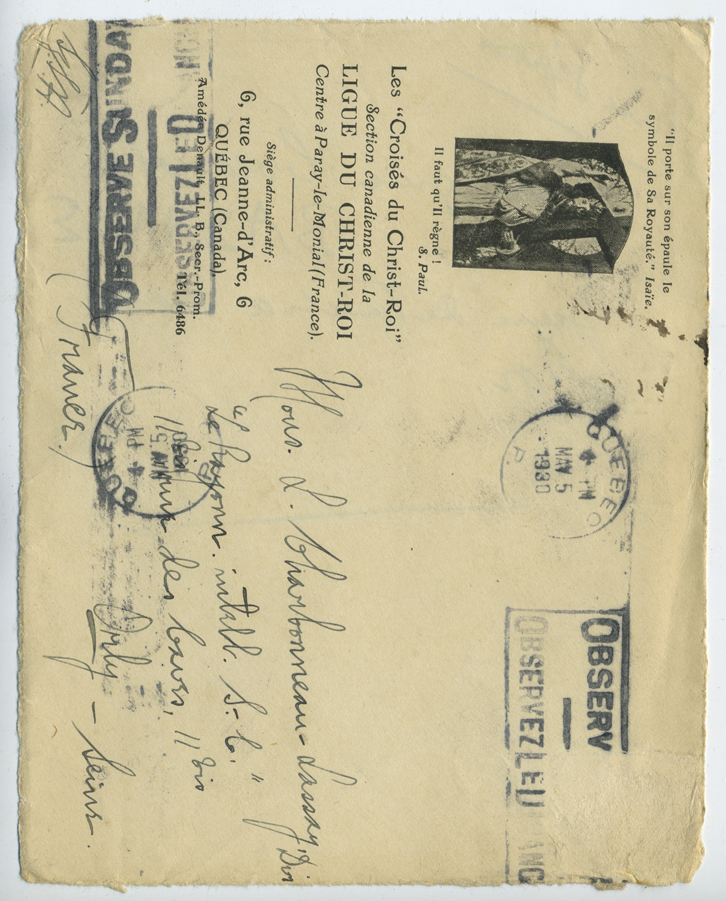 "Il porte sur son épaule le
symbole de Sa Royauté." Isaïe.
Il faut qu'Il règne !
S. Paul.
Les "Croisés du Christ-Roi"
Section canadienne de la
LIGUE DU CHRIST-ROI
Centre à Paray-le-Monial (France).
Siège administratif :
6, rue Jeanne-d'Arc, 6
QUÉBEC (Canada)
Amédée Denault, LL. B., Secr.-Prom.
Tél. 6486
QUEBEC
4 PM
MAY 5
1930
P.
OBSERV
OBSERVEZ LE
QUEBEC
4 PM
MAY 5
1930
P.
OBSERVE SUNDA
OBSERVEZ LE
Mons. L. Charbonneau-Lassay, Dir
"Le Rayonn. intell. S.-C."
des Caves, 11 bis
Orly – Seine.
(France)